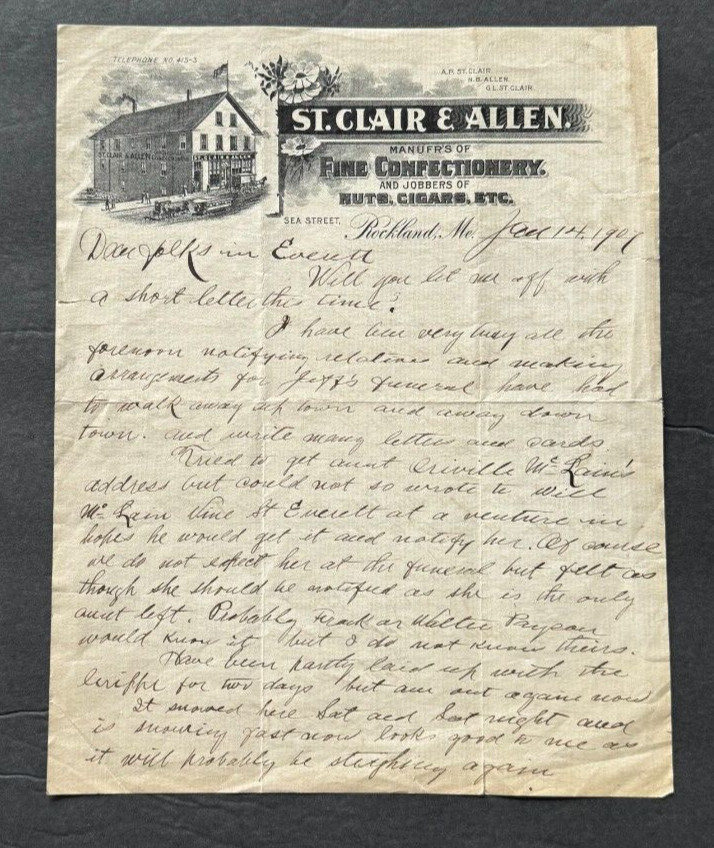 TELEPHONE NO. 415-3
A.P. ST. CLAIR.
N.B. ALLEN.
G.L. ST. CLAIR.
ST. CLAIR & ALLEN.
MANUFR'S OF
FINE CONFECTIONERY.
AND JOBBERS OF
NUTS, CIGARS, ETC.
ST. CLAIR & ALLEN
SEA STREET.
Rockland, Me. Jan 14, 1907
Dear folks in Everett
Will you let me off with
a short letter this time?
I have been very busy all the
forenoon notifying relatives and making
arrangements for Jeff's funeral have had
to walk away up town and away down
town. and write many letters and cards
Tried to get aunt Oriville Mc Lain's
address but could not so wrote to Will
Mc Lain Vine St Everett at a venture in
hopes he would get it and notify her. Of course
we do not expect her at the funeral but felt as
though she should be notified as she is the only
aunt left. Probably Frank or Walter Payson
would know it but I do not know theirs.
Have been partly laid up with the
Grippe for two days but am out again now
It snowed here Sat and Sat night and
is snowing fast now looks good to me as
it will probably be sleighing again